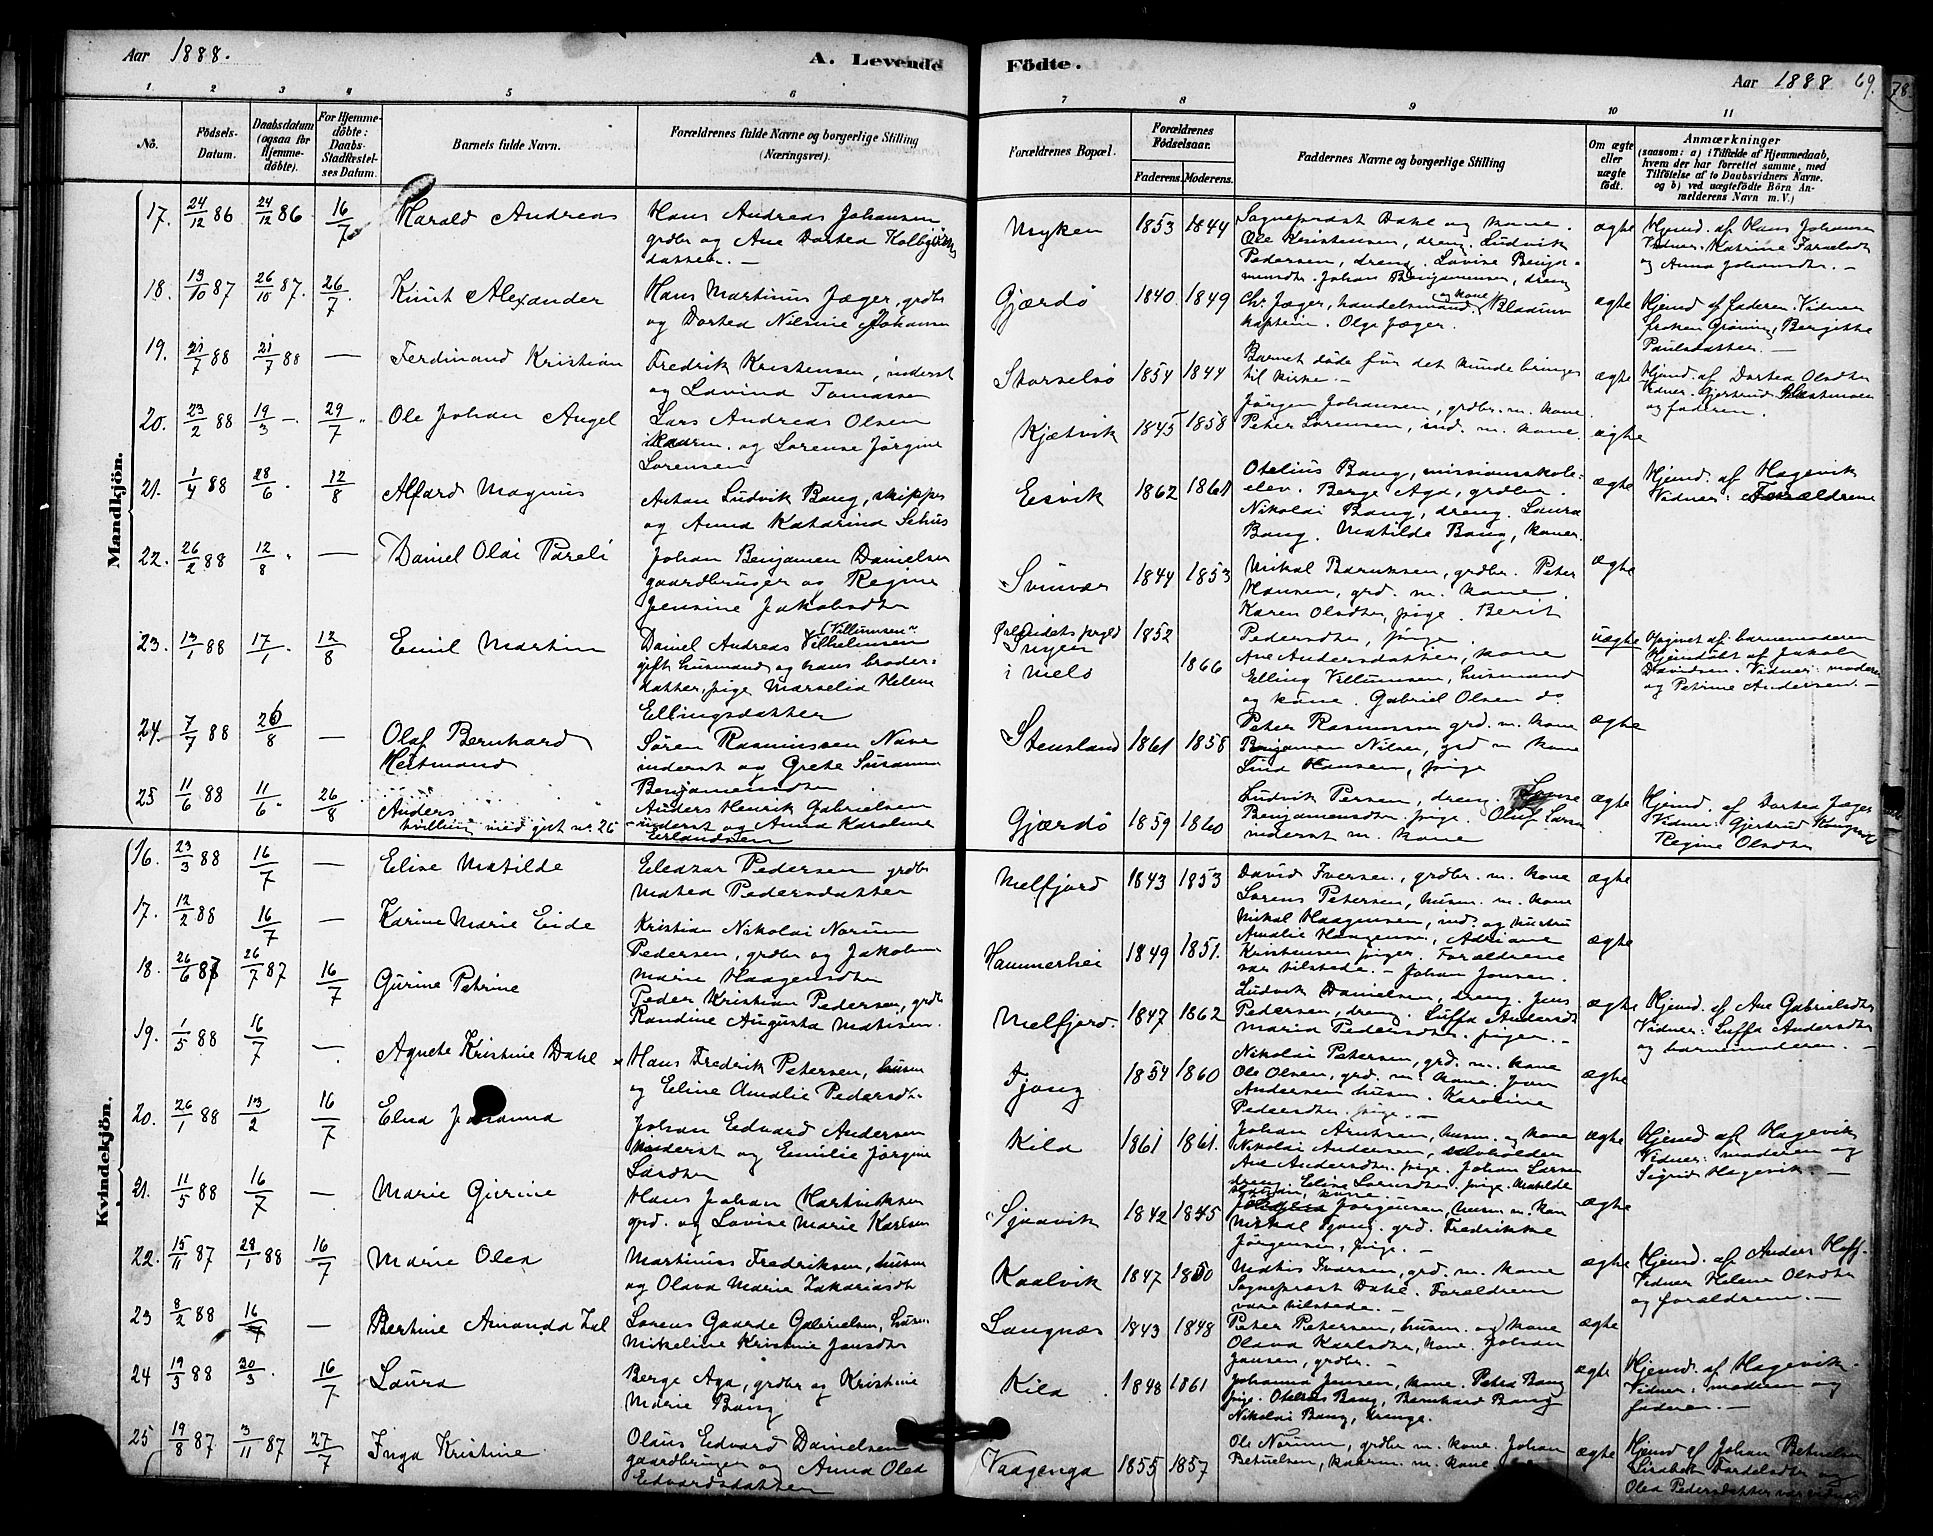 Aar 1888.
A. Levende
Födte.
Aar 1888 69.
78
1 2 3 4 5 6
7 8 9 10 11
No.
Födsels-Datum.
Daabsdatum (ogsaa for Hjemmedöbte).
For Hjemmedöbte: Daabs-Stadfæstelses Datum.
Barnets fulde Navn.
Forældrenes fulde Navne og borgerlige Stilling
(Næringsvei).
Forældrenes Bopæl.
Forældrenes Födselsaar.
Faderens. Moderens.
Faddernes Navne og borgerlige Stilling
Om ægte eller uægte födt.
Anmærkninger
(saasom: a) i Tilfælde af Hjemmedaab,
hvem der har forrettet samme, med
Tilföielse af to Daabsvidners Navne.
og b) ved uægtefödte Börn Anmelderens Navn m. V.)
Mandkjön.
17. 24/12 86 24/12 86 16/7 Harald Andreas
Hans Andreas Johansen
grdbr og Ane Dortea
datter. —
Myken 1853 1844
Sognepræst Dahl og kone.
Ole Kristensen, dreng. Ludvik
Pedersen, dreng. Lovise
Johan Benjaminsen, dreng
ægte
Hjemd. af Hans Johansen
Vidner. Katrine
og Anna Johansdtr. —
18. 13/10 87 26/10 87. 26/7. Knut Alexander
Hans Martinus Jæger, grdbr
og Dortea Nilsine Johansen
Gjærdö 1840. 1849
Chr. Jæger, handelsmand. og kone
kaptein. Olga Jæger.
ægte
Hjemd af faderen. Vidner
fröken Gröning, Bergitte
Paulsdatter. —
19. 21/7 88 21/7 88 — Ferdinand Kristian
Fredrik Kristensen, inderst
og Lovina Tomassen
Storselsö 1854 1844
Barnet döde för det kunde bringes
til kirke. —
ægte
Hjemd. af Dortea Olsdtr
Vidner. Gjertrud
og faderen.
20. 23/2 88 19/3 — 29/7 " Ole Johan Angel
Lars Andreas Olsen
og Lorense Jörgine
Lorensen
Kjætvik 1845 1858
Jörgen Johansen, grdbr. m. kone.
Peter Lorensen, ind. m. kone.
ægte
21. 1/4 88 28/6 . 12/8 Alfard Magnus
Anton Ludvik Bang, skipper
og Anna Katarina
Esvik 1862 1861
Otelius Bang, missionsskole-
elev. Berge Aga, grdbr.
Nikolai Bang, dreng. Laura
Bang. Matilde Bang, koner.
ægte
Hjemd. af Hagevik
Vidner: Forældrene
22. 26/2 88 12/8 " — Daniel Olai Pareli
Johan Benjamen Danielsen
gaardbruger og Regine
Jensine Jakobsdtr
Svinvær 1844 1853
Mikal Baruksen, grdbr. Peter
Hansen, grd. m. kone.
Karen Olsdtr, pige. Berit
Pedersdtr, pige.
ægte
23. 13/1 88 17/1 . 12/8 Emil Martin
Daniel Andreas Vilhelmsen
(Villumsen)
gift husmand og hans broder-
datter, pige Marselia Helene
Ellingsdatter
i Melö
1852
1866
Ane Andersdatter, kone
Elling Villumsen, husmand
og kone. Gabriel Olsen do
uægte
Opgivet af barnemoderen
Hjemdöbt af Jakob
Davidsen. Vidner: moderen
og Petrine Andersen. —
24. 7/7 88 26/8 — Olaf Bernhard
Hestmand
Sören Rasmussen
inderst og Grete Susanna
Benjamensdtr
Stensland 1861 1858
Peter Rasmussen grd. m. kone
Benjamen Nilsen, grd m kone
Lina Hansen, pige
ægte
25 11/6 88 11/6 . 26/8 Anders
tvilling med
Anders Henrik Gabrielsen
inderst og Anna Karoline
Erlandsen
Gjærdö 1859 1860
Ludvik Persen, dreng. Lovise
Benjamensdtr pige. Oluf Larsen
inderst m. kone
ægte
Hjemd. af Dortea Jæger
Vidner: Gjertrud
Regine Olsdtr
Kvindekjön.
16. 23/3 88 16/7 — Elise Matilde
Eleazar Pedersen grdbr
Matea Pedersdatter
Melfjord 1843 1853
David Iversen, grdbr. m. kone
Lorens Petersen, husm. m. kone
ægte
17. 12/2 88 16/7 — Karine Marie Eide
Kristian Nikolai Norum
Pedersen, grdbr og Jakobine
Marie Haagensdtr
Hammerhei 1849 1851.
Mikal Haagensen, ind. og hustru
Amalie Haagensen, Adriane
Kristensen piger. Forældrene
var tilstede. — Johan Jonsen.
ægte
18. 26/6 87 26/7 87 16/7 Gurine Petrine
Peder Kristian Pedersen, grdbr
Randine Augusta Matisen.
Melfjord. 1847 1862
Ludvik Danielsen, dreng. Jens
Pedersen, dreng. Luffa Andersdtr
Maria Pedersdtr. piger. —
ægte
Hjemd. af Ane Gabrielsdtr
Vidner: Luffa Andersdtr
og barnemoderen. —
19. 1/5 88 16/7 — Agnete Kristine Dahl
Hans Fredrik Petersen, husm
og Eline Amalie Pedersdtr.
Tjong 1854 1860
Nikolai Petersen, grd. m. kone
Ole Olsen, grd. m. kone.
Andersen husm. Karoline
Pedersdtr, pige. —
ægte
20. 26/1 88 13/2 16/7 Elna Johanna
Johan Edvard Andersen
inderst og Emilie Jörgine
Larsdtr
Kila 1861 1861.
Johan Arntsen, husm. og kone
Nikolai Andersen,
Ane Andersdtr. pige. Johan Larsen
dreng. Eline Larsdtr. pige. Matilde
kone.
ægte
Hjemd af Hagevik
Vidner: moderen og
Sigrid Hagevik —
21. 11/5 88 16/7 — Marie Gurine
Hans Johan Hartviksen
grd. og Lovise Marie Karlsen
Sjaavik 1842 1845
Jörgensen, husm. m. kone
Mikal Tjong. grd. Fredrikke
Jörgensen, pige. —
ægte
22. 15/11 87 28/1 88 16/7 Marie Olea
Martinus Fredriksen, husm
og Olava Marie Zakariasdtr
Kaalvik 1847 1850
Matis Iversen, grd. m. kone
Sogneprest Dahl. Forældrene
vare tilstede. —
ægte
Hjemd. af Anders Hoff.
Vidner Helene Olsdtr
og forældrene. —
23 8/2 88 16/7 — Bertine Amanda
Lorens Gaarde Gabrielsen, husm.
Mikeline Kristine Jonsdtr
Langnæs 1843 1848
Peter Petersen, husm. og kone
Olava Karlsdtr, kone. Johan
Jansen, grdbr. —
ægte
24 19/3 88 20/3 . 16/7 Laura
Berge Aga, grdbr og Kristine
Marie Bang
Kila 1848 1861
Johanna Jensen, kone. Petra Bang
pige. Otelius Bang, Bernhard Bang
Nikolai Bang, drenge.
ægte
Hjemd. af Hagevik.
Vidner: moderen og
faderen. —
25 19/8 87 3/11 87 27/7 Inga Kristine
Olaus Edvard Danielsen
gaardbruger og Anna Olea
Edvardsdatter
Vaagenga 1855 1857
Ole Norum, grdbr m. kone. Johan
Betuelsen, m. kone
ægte
Hjemd af Johan Betuelsen
og
Olea Pedersdatter var vidner